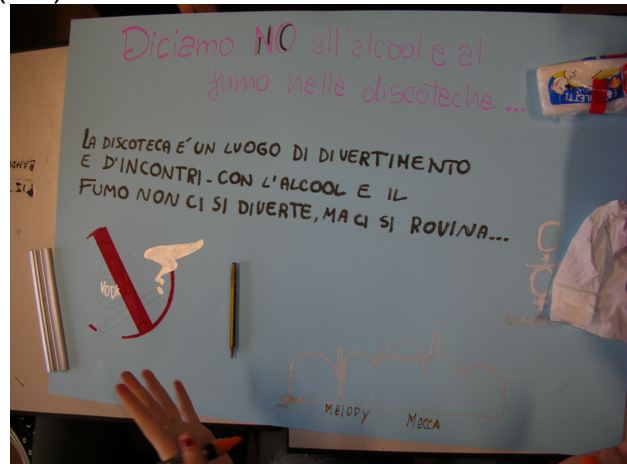 Diciamo NO all'alcool e al
fumo nelle discoteche...
LA DISCOTECA E' UN LUOGO DI DIVERTIMENTO
E D'INCONTRI - CON L'ALCOOL E IL
FUMO NON CI SI DIVERTE, MA CI SI ROVINA...
MELODY MECCA